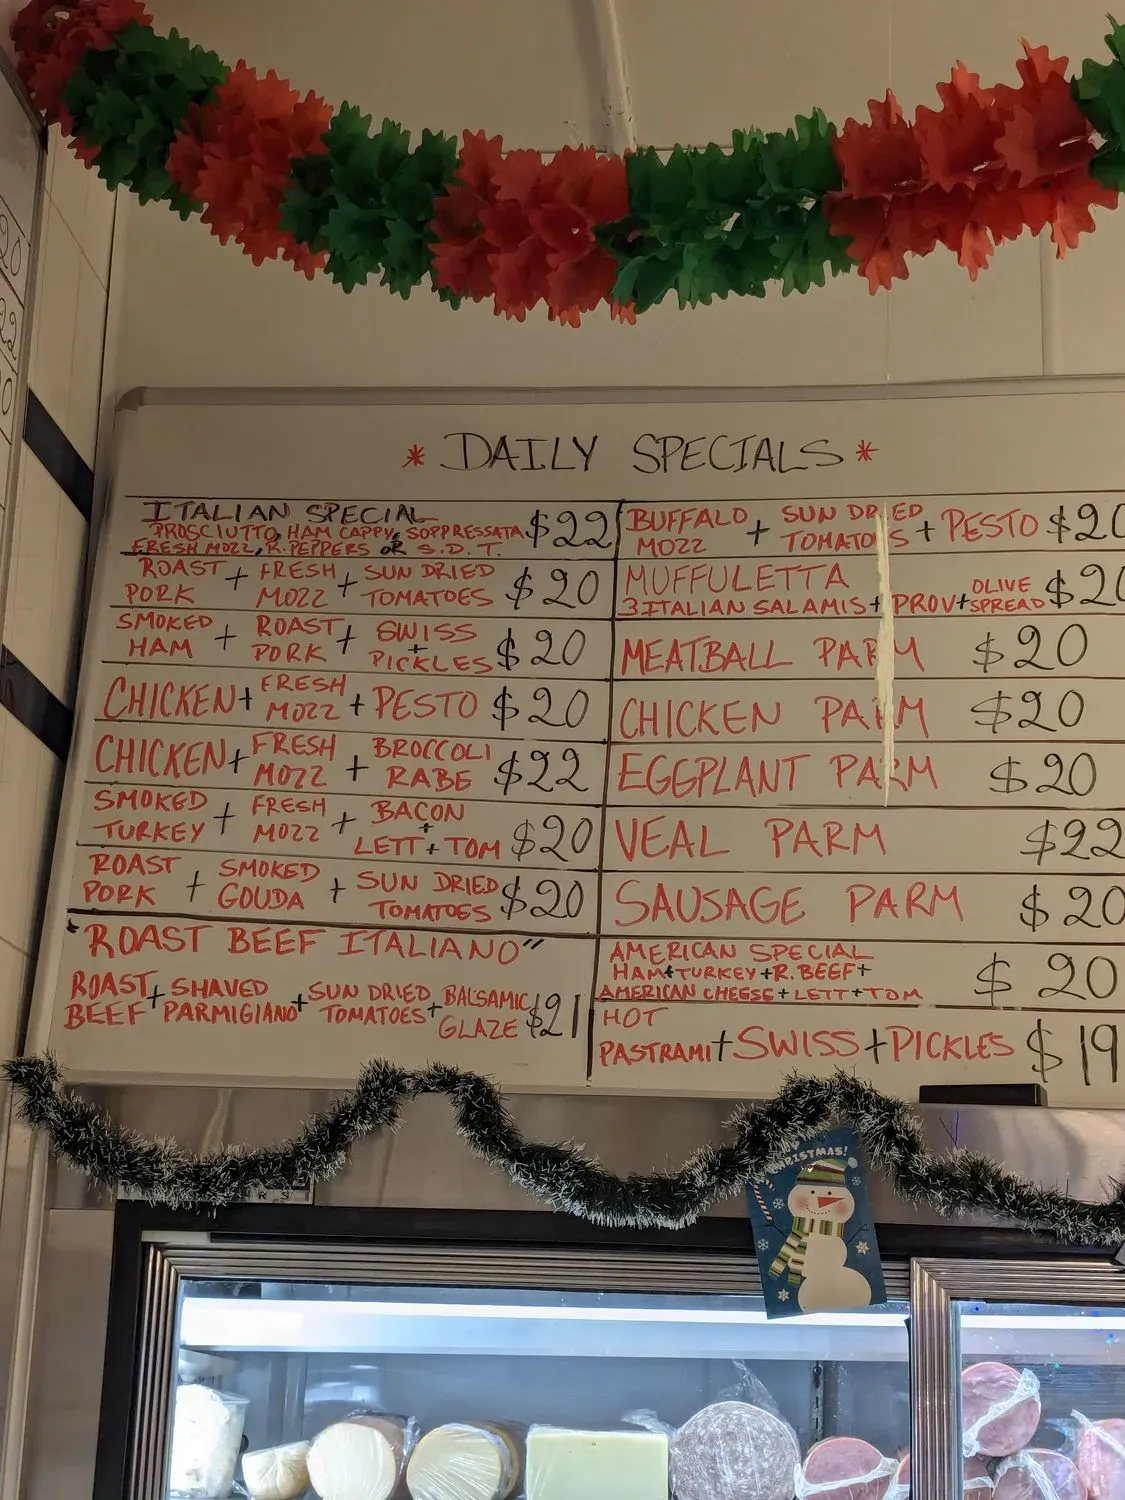 * DAILY SPECIALS *
ITALIAN SPECIAL
PROSCIUTTO, HAM CAPPY, SOPPRESSATA
FRESH MOZZ, R. PEPPERS OR S.D.T.
$22
ROAST PORK + FRESH MOZZ + SUN DRIED TOMATOES $20
SMOKED HAM + ROAST PORK + SWISS + PICKLES $20
CHICKEN + FRESH MOZZ + PESTO $20
CHICKEN + FRESH MOZZ + BROCCOLI RABE $22
SMOKED TURKEY + FRESH MOZZ + BACON + LETT + TOM $20
ROAST PORK + SMOKED GOUDA + SUN DRIED TOMATOES $20
"ROAST BEEF ITALIANO"
ROAST BEEF + SHAVED PARMIGIANO + SUN DRIED TOMATOES + BALSAMIC GLAZE $21
BUFFALO MOZZ + SUN DRIED TOMATOES + PESTO $20
MUFFULETTA
3 ITALIAN SALAMIS + PROV + OLIVE SPREAD $20
MEATBALL PARM $20
CHICKEN PARM $20
EGGPLANT PARM $20
VEAL PARM $22
SAUSAGE PARM $20
AMERICAN SPECIAL
HAM + TURKEY + R. BEEF +
AMERICAN CHEESE + LETT + TOM
$20
HOT
PASTRAMI + SWISS + PICKLES $19
CHRISTMAS!